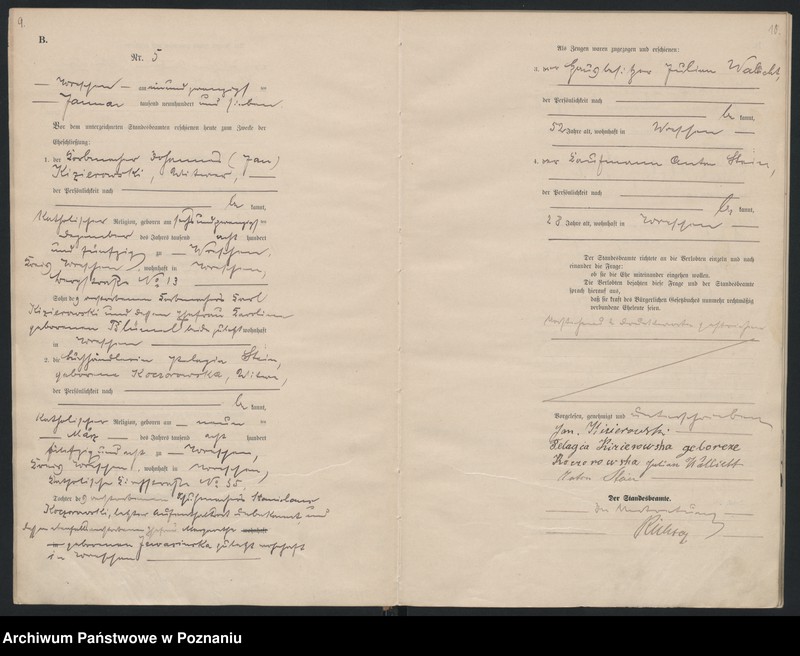 9.
B.
Nr. 5
Wreschen am neunundzwanzigsten
Januar tausend neunhundert und sieben
Vor dem unterzeichneten Standesbeamten erschienen heute zum Zwecke der
Eheschließung:
1. der Korbmacher Johannes (Jan)
Kizierowski, Witwer,
der Persönlichkeit nach
kannt,
katholischer Religion, geboren am sechsundzwanzigsten
Dezember des Jahres tausend acht hundert
und fünfzig zu Wreschen,
Kreis Wreschen, wohnhaft in Wreschen,
No 13
Sohn des verstorbenen Korbmachers Karl
Kizierowski und dessen Ehefrau Karoline
geborenen beide zuletzt wohnhaft
in Wreschen
2. die Buchhändlerin Pelagia Stein,
geborene Koczorowska, Witwe,
der Persönlichkeit nach
kannt,
katholischer Religion, geboren am neunten
März des Jahres tausend acht hundert
fünfzig und acht zu Wreschen,
Kreis Wreschen, wohnhaft in Wreschen,
Katholische Kirchstraße No 35.
Tochter des verstorbenen Stanislaus
Koczorowski, letzter Aufenthaltsort unbekannt und
dessen Ehefrau Margarethe
geborenen zuletzt wohnhaft
in Wreschen
10.
Als Zeugen waren zugezogen und erschienen:
3. der Hausbesitzer Julian Wallicht,
der Persönlichkeit nach
kannt,
52 Jahre alt, wohnhaft in Wreschen
4. der Kaufmann Anton Stein,
der Persönlichkeit nach
kannt,
28 Jahre alt, wohnhaft in Wreschen
Der Standesbeamte richtete an die Verlobten einzeln und nach
einander die Frage:
ob sie die Ehe miteinander eingehen wollen.
Die Verlobten bejahten diese Frage und der Standesbeamte
sprach hierauf aus,
daß sie kraft des Bürgerlichen Gesetzbuches nunmehr rechtmäßig
verbundene Eheleute seien.
Vorstehend 2 Druckworte gestrichen
Vorgelesen, genehmigt und unterschrieben
Jan. Kizierowski
Pelagia Kizierowska geborene
Koczorowska Julian Wallicht
Anton Stein
Der Standesbeamte.
In Vertretung
Archiwum Państwowe w Poznaniu